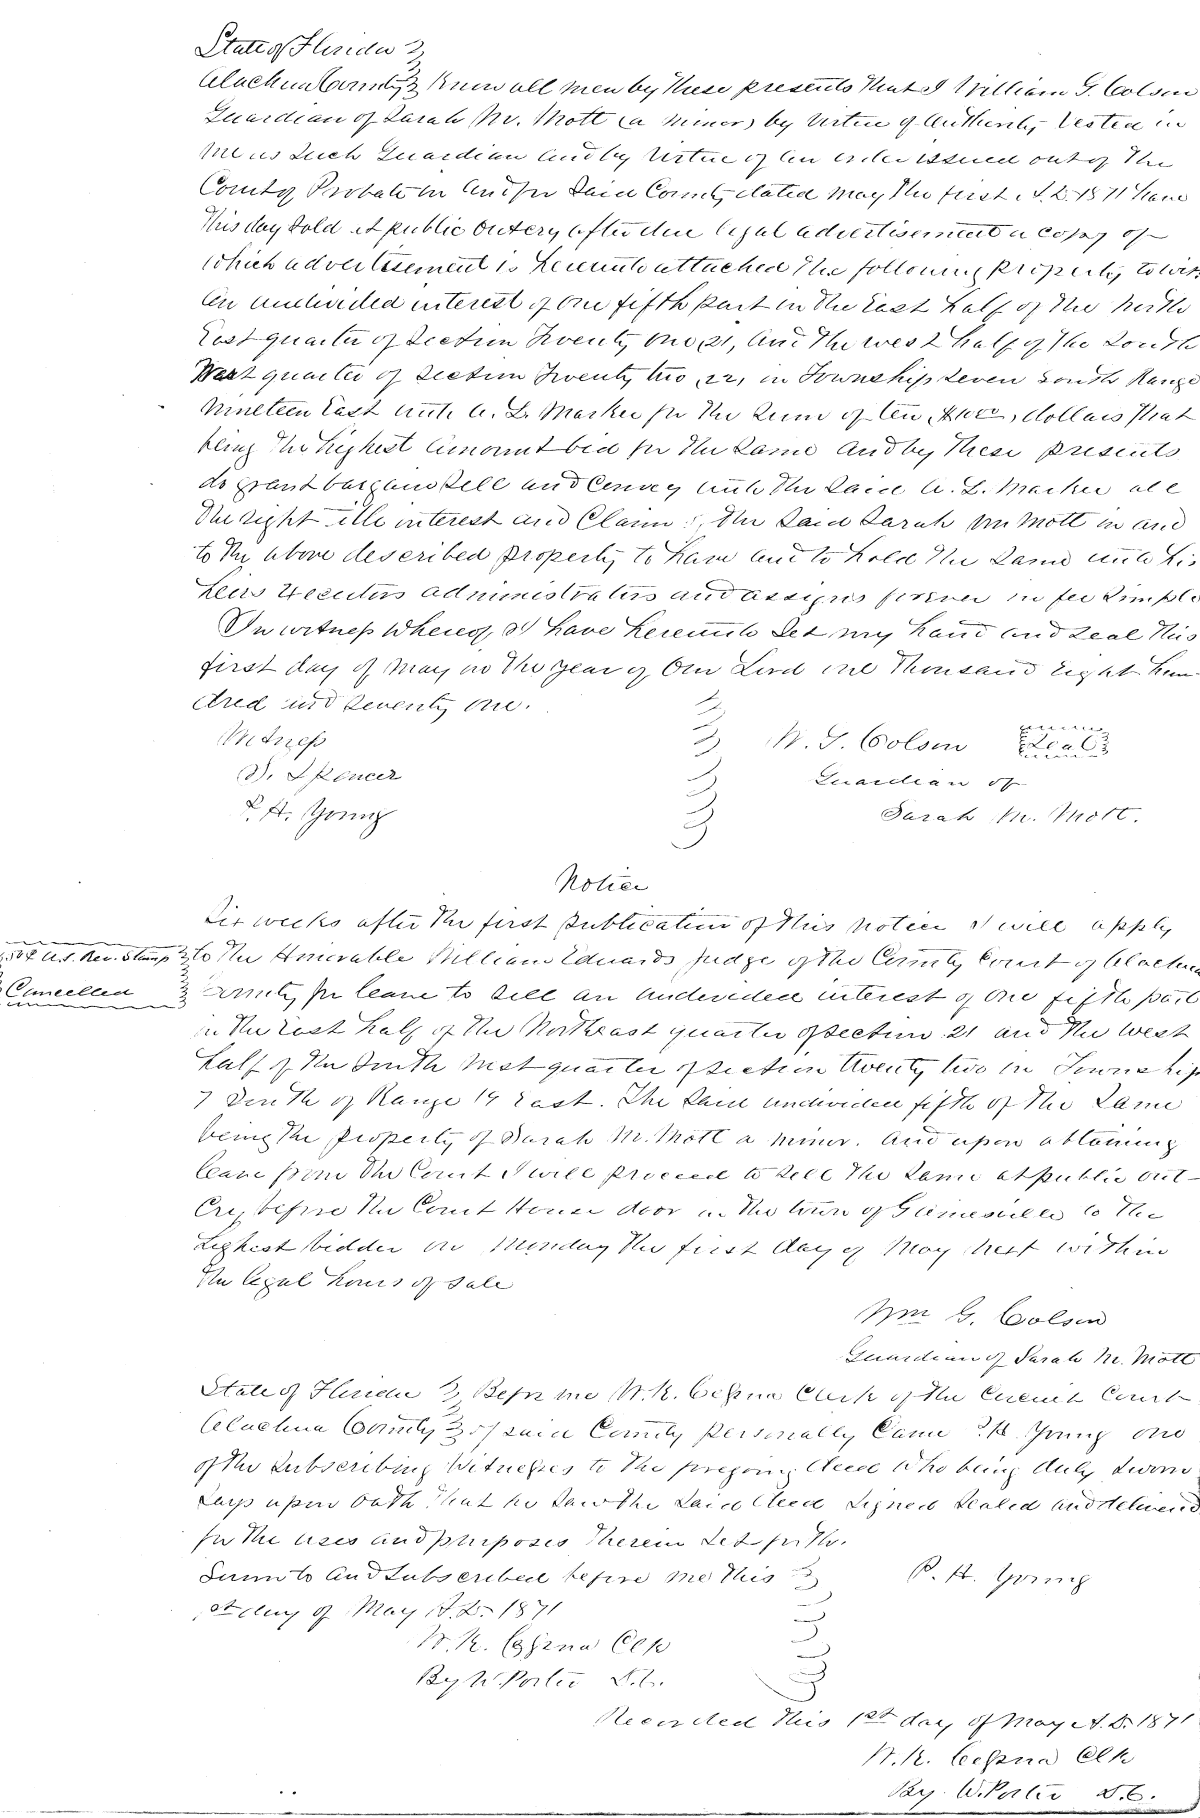 State of Florida
Alachua County Know all men by these presents that I William G. Colson
Guardian of Sarah M. Mott (a minor) by virtue of authority vested in
me as such Guardian and by virtue of an order issued out of the
Court of Probate in and for said County dated May the first A.D. 1871 have
this day sold at public outcry after due legal advertisement a copy of
which advertisement is hereunto attached the following property, to wit,
An undivided interest of one fifth part in the East half of the North
East quarter of Section Twenty one, 21, and the west half of the South
West quarter of Section Twenty two, 22, in Township seven South Range
Nineteen East unto A. L. Market for the sum of ten dollars that
being the highest amount bid for the same and by these presents
do grant bargain sell and convey unto the said A. L. Market all
the right title interest and claim of the said Sarah M Mott in and
to the above described property, to have and to hold the same unto his
heirs executors administrators and assigns forever in fee simple
In witness whereof I have hereunto set my hand and seal this
first day of May in the year of our Lord one thousand eight hun-
dred and seventy one.
Witness
W. G. Colson Seal
Spencer
Guardian of
P. H. Young
Sarah M. Mott.
Notice
Six weeks after the first publication of this notice I will apply
50¢ U.S. Rev. Stamp
Cancelled
to the Honorable William Edwards judge of the County Court of Alachua
County for leave to sell an undivided interest of one fifth part
in the East half of the Northeast quarter of section 21 and the west
half of the South West quarter of section twenty two in Township
7 South of Range 19 East. The said undivided fifth of the same
being the property of Sarah M. Mott a minor. And upon obtaining
leave from the Court I will proceed to sell the same at public out-
cry before the Court House door in the town of Gainesville to the
highest bidder on Monday the first day of May next within
the legal hours of sale
Wm G. Colson
Guardian of Sarah M. Mott
State of Florida Before me W. K. Cessna Clerk of the Circuit Court
Alachua County of said County personally came P.H. Young one
of the subscribing witnesses to the foregoing deed who being duly sworn
says upon oath that he saw the said deed signed sealed and delivered
for the uses and purposes therein set forth.
Sworn to and subscribed before me this
P. H. Young
1st day of May A.D. 1871
W. K. Cessna Clk
By W. Porter D.C.
Recorded this 1st day of May A.D. 1871
W. K. Cessna Clk
By W. Porter D.C.